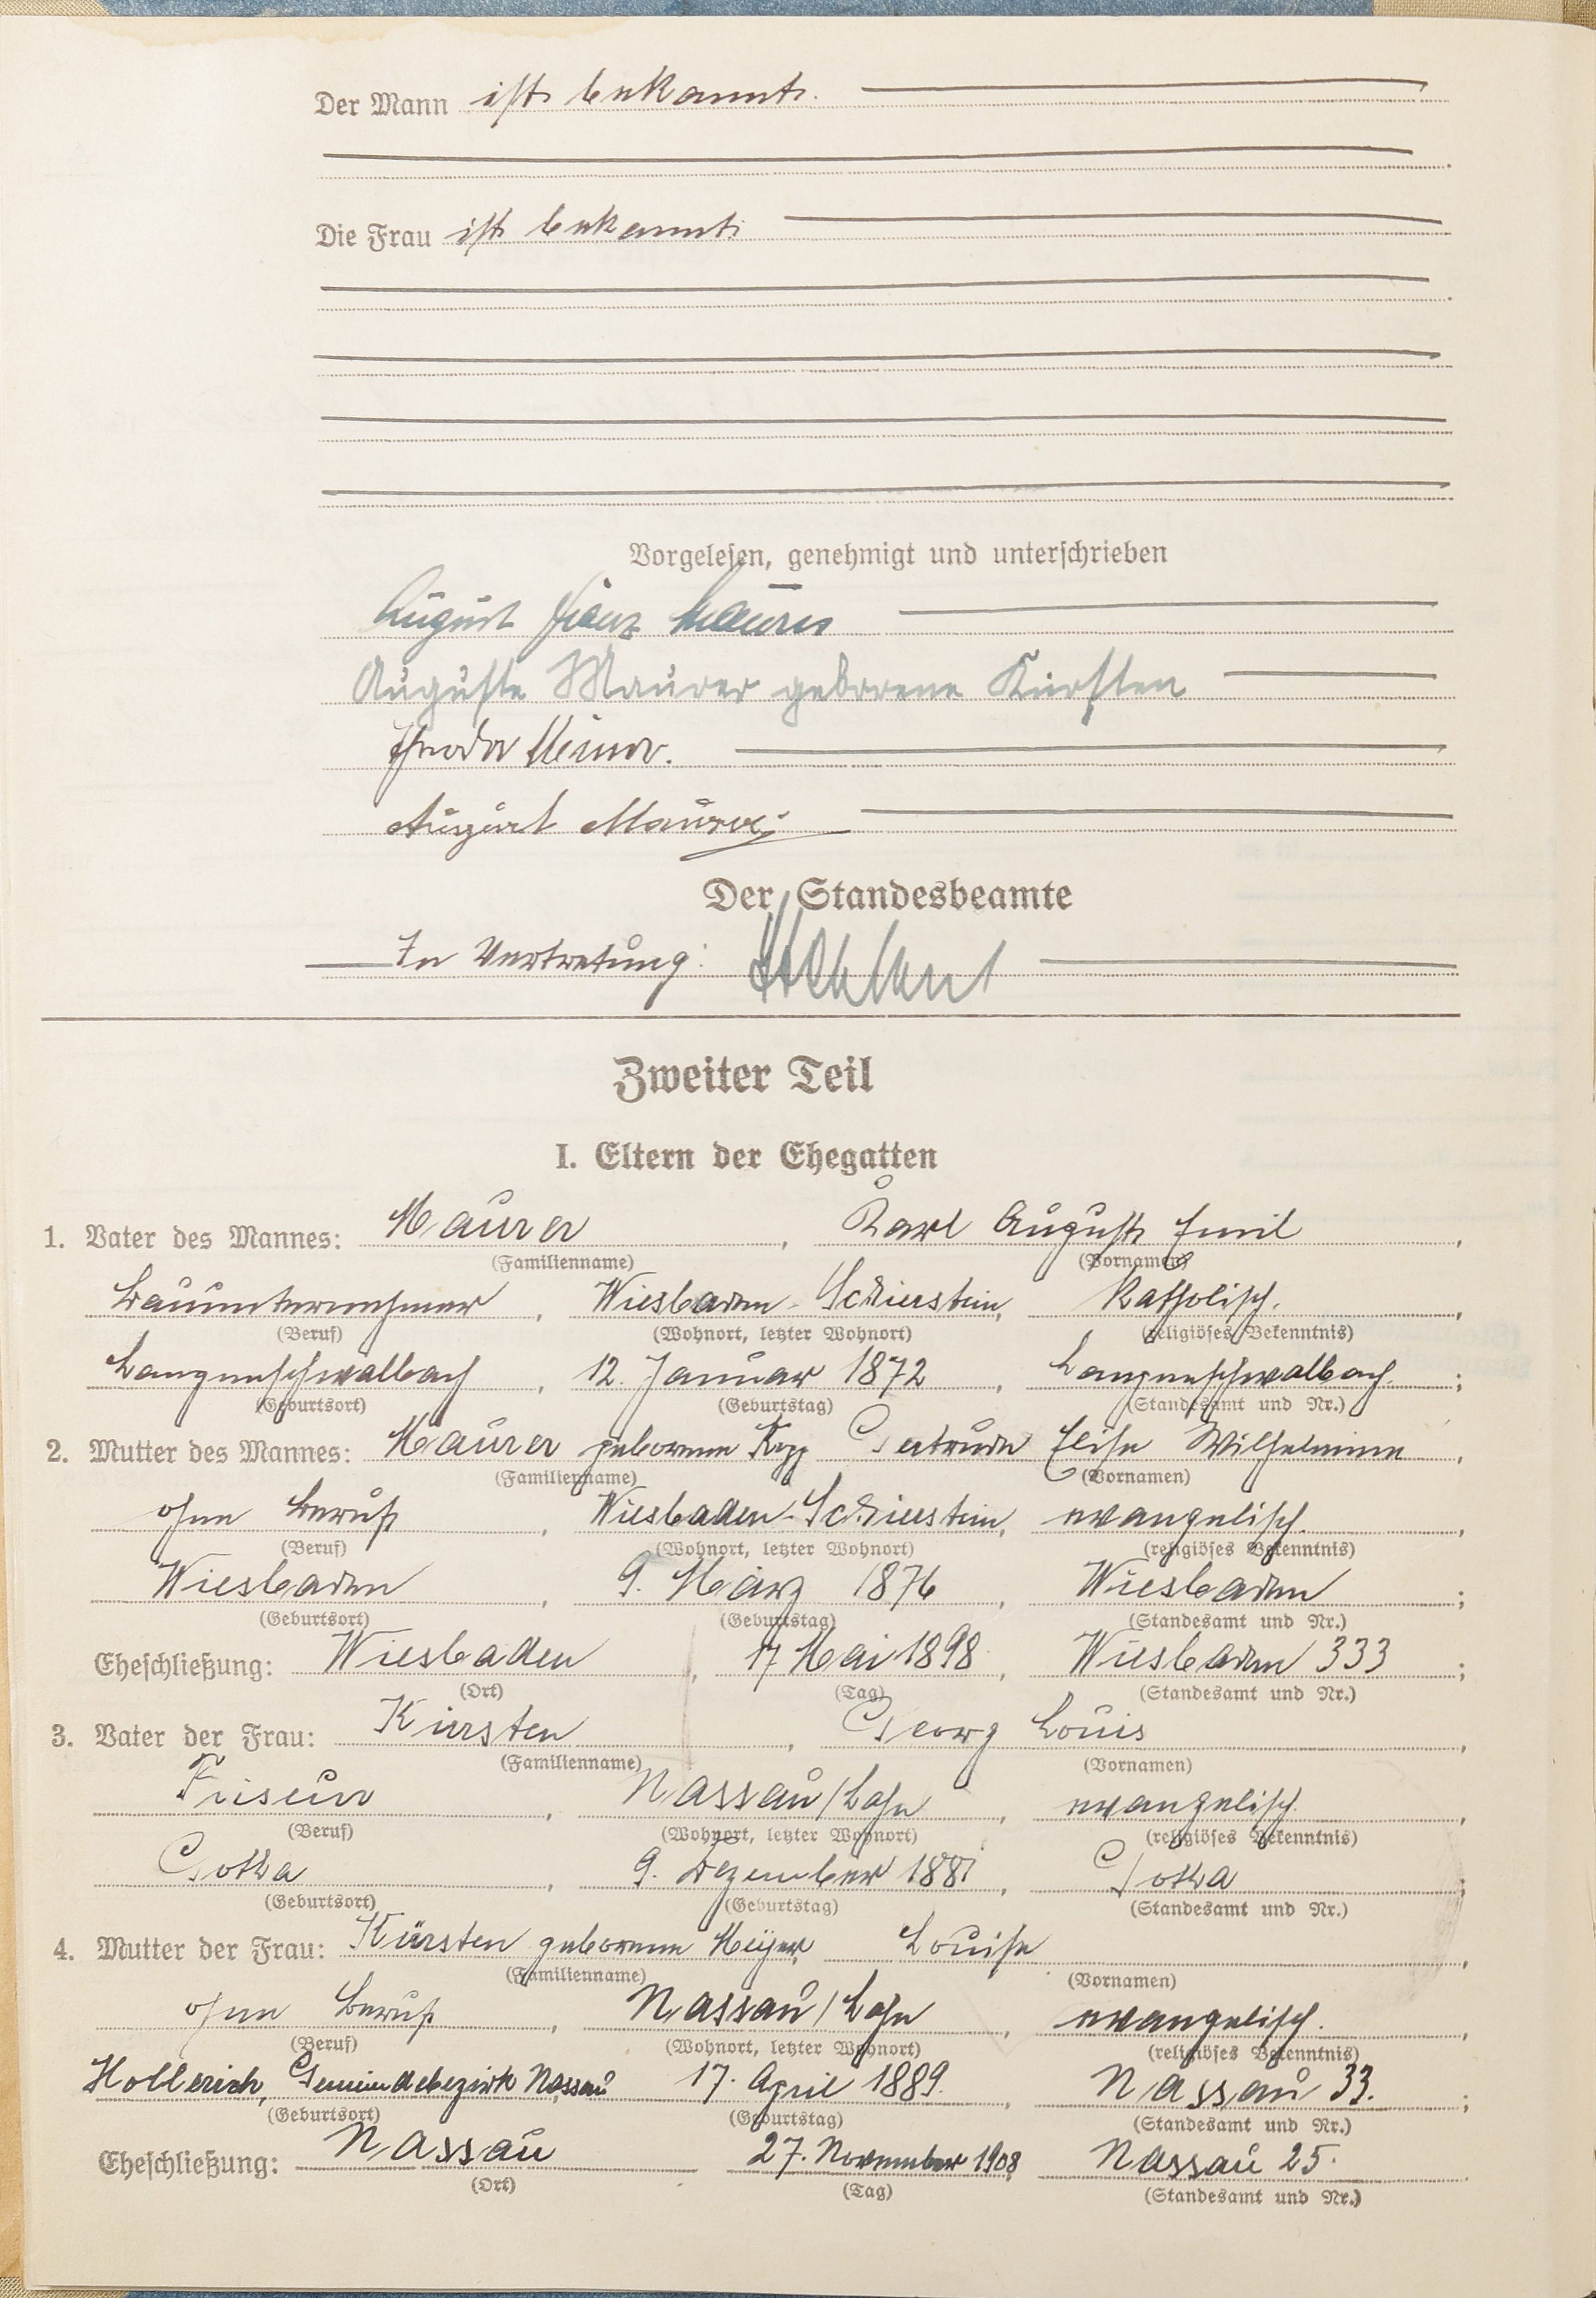 Der Mann ist bekannt.
Die Frau ist bekannt.
Vorgelesen, genehmigt und unterschrieben
August Franz Maurer
Auguste Maurer geborene Kürsten
Theodor
August Maurer
Der Standesbeamte
In Vertretung:
Zweiter Teil
I. Eltern der Ehegatten
1. Vater des Mannes: Maurer, Karl August Emil,
(Familienname) (Vornamen)
Bauunternehmer, Wiesbaden-Schierstein, katholisch.,
(Beruf) (Wohnort, letzter Wohnort) (religiöses Bekenntnis)
Langenschwalbach, 12. Januar 1872, Langenschwalbach.;
(Geburtsort) (Geburtstag) (Standesamt und Nr.)
2. Mutter des Mannes: Maurer geborene Kopp Gertrude Elise Wilhelmine,
(Familienname) (Vornamen)
ohne Beruf, Wiesbaden-Schierstein, evangelisch.,
(Beruf) (Wohnort, letzter Wohnort) (religiöses Bekenntnis)
Wiesbaden, 9. März 1876, Wiesbaden;
(Geburtsort) (Geburtstag) (Standesamt und Nr.)
Eheschließung: Wiesbaden, 17 Mai 1898, Wiesbaden 333;
(Ort) (Tag) (Standesamt und Nr.)
3. Vater der Frau: Kürsten, Georg Louis,
(Familienname) (Vornamen)
Friseur, Nassau/Lahn, evangelisch.,
(Beruf) (Wohnort, letzter Wohnort) (religiöses Bekenntnis)
Gotha, 9. Dezember 1881, Gotha;
(Geburtsort) (Geburtstag) (Standesamt und Nr.)
4. Mutter der Frau: Kürsten geborene Meyer, Louise,
(Familienname) (Vornamen)
ohne Beruf, Nassau/Lahn, evangelisch.,
(Beruf) (Wohnort, letzter Wohnort) (religiöses Bekenntnis)
Hollerich, Gemeindebezirk Nassau 17. April 1889., Nassau 33.;
(Geburtsort) (Geburtstag) (Standesamt und Nr.)
Eheschließung: Nassau 27. November 1908, Nassau 25.
(Ort) (Tag) (Standesamt und Nr.)